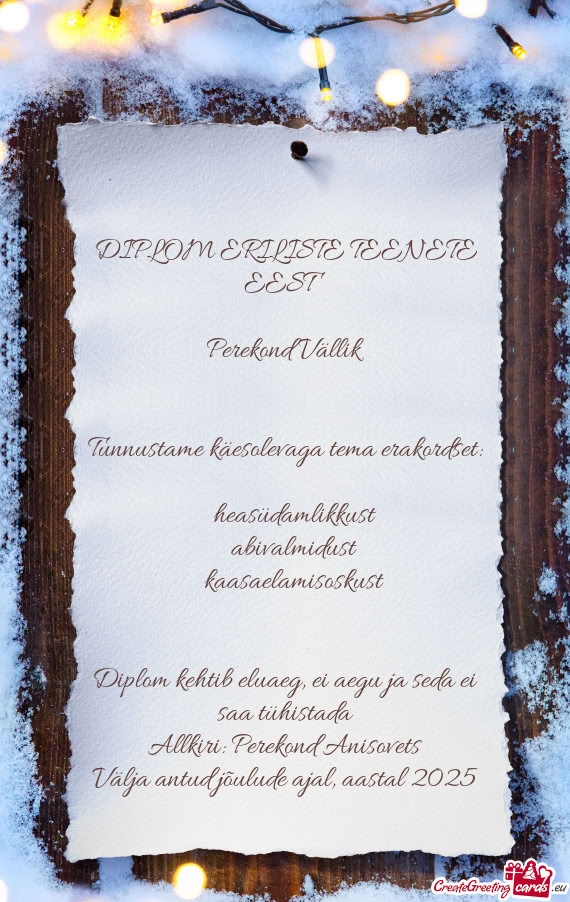 DIPLOM ERILISTE TEENETE
EEST
Perekond Vällik
Tunnustame käesolevaga tema erakordset:
heasüdamlikkust
abivalmidust
kaasaelamisoskust
Diplom kehtib eluaeg, ei aegu ja seda ei
saa tühistada
Allkiri: Perekond Anisovets
Välja antud jõulude ajal, aastal 2025
CreateGreetingcards.eu